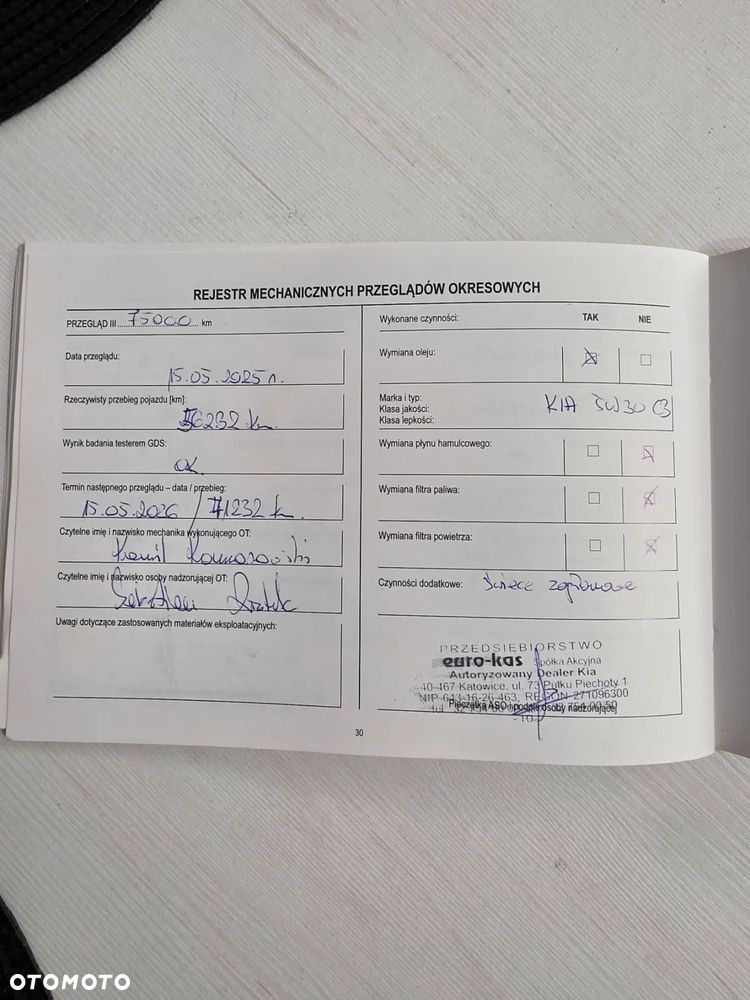 REJESTR MECHANICZNYCH PRZEGLĄDÓW OKRESOWYCH
PRZEGLĄD III 75000 km
Data przeglądu:
15.05.2025 r.
Rzeczywisty przebieg pojazdu [km]:
56232 km
Wynik badania testerem GDS:
OK
Termin następnego przeglądu – data / przebieg:
15.05.2026 / 71232 km
Czytelne imię i nazwisko mechanika wykonującego OT:
Kamil Komorowski
Czytelne imię i nazwisko osoby nadzorującej OT:
Uwagi dotyczące zastosowanych materiałów eksploatacyjnych:
Wykonane czynności: TAK NIE
Wymiana oleju:
Marka i typ:
Klasa jakości:
Klasa lepkości:
KIA 5W30 C3
Wymiana płynu hamulcowego:
Wymiana filtra paliwa:
Wymiana filtra powietrza:
Czynności dodatkowe: świece zapłonowe
PRZEDSIĘBIORSTWO
euro-kas Spółka Akcyjna
Autoryzowany Dealer Kia
40-467 Katowice, ul. 73 Pułku Piechoty 1
NIP 643-16-26-463, REGON 271096300
Pieczątka ASO i podpis osoby nadzorującej
-10-
30
OTOMOTO